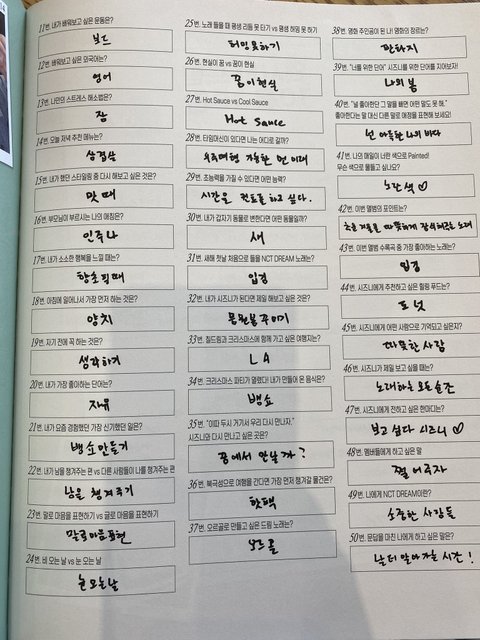 11번. 내가 배워보고 싶은 운동은?
보드
12번. 배워보고 싶은 외국어는?
영어
13번. 나만의 스트레스 해소법은?
잠
14번. 오늘 저녁 추천 메뉴는?
삼겹살
15번. 내가 했던 스타일링 중 다시 해보고 싶은 것은?
맛 때
16번. 부모님이 부르시는 나의 애칭은?
인쭈나
17번. 내가 소소한 행복을 느낄 때는?
18번. 아침에 일어나서 가장 먼저 하는 것은?
양치
19번. 자기 전에 꼭 하는 것은?
생각하기
20번. 내가 가장 좋아하는 단어는?
자유
21번. 내가 요즘 경험했던 가장 신기했던 일은?
뱅쇼만들기
22번. 내가 남을 챙겨주는 편 vs 다른 사람들이 나를 챙겨주는 편
남을 챙겨주기
23번. 말로 마음을 표현하기 vs 글로 마음을 표현하기
말로마음표현
24번. 비 오는 날 vs 눈 오는 날
눈 오는날
25번. 노래 들을 때 평생 리듬 못 타기 vs 평생 허밍 못 하기
허밍못하기
26번. 현실이 꿈 vs 꿈이 현실
꿈이현실
27번. Hot Sauce vs Cool Sauce
Hot Sauce
28번. 타임머신이 있다면 나는 어디로 갈까?
우주여행 가능한 먼 미래
29번. 초능력을 가질 수 있다면 어떤 능력?
시간을 컨트롤 하고 싶다.
30번. 내가 갑자기 동물로 변한다면 어떤 동물일까?
새
31번. 새해 첫날 처음으로 들을 NCT DREAM 노래는?
입경
32번. 내가 시즈니가 된다면 제일 해보고 싶은 것은?
폼림볼꾸미기
33번. 칠드림과 크리스마스에 함께 가고 싶은 여행지는?
LA
34번. 크리스마스 파티가 열렸다! 내가 만들어 온 음식은?
뱅쇼
35번. "이따 두시 거기서 우리 다시 만나자."
시즈니와 다시 만나고 싶은 곳은?
꿈에서 만날까?
36번. 북극성으로 여행을 간다면 가장 먼저 챙겨갈 물건은?
핫팩
37번. 오르골로 만들고 싶은 드림 노래는?
오르골
38번. 영화 주인공이 된 나! 영화의 장르는?
판타지
39번. "너를 위한 단어" 시즈니를 위한 단어를 지어보자!
나의봄
40번. "널 좋아한단 그 말을 빼면 어떤 말도 못 해."
좋아한다는 말 대신 다른 말로 애정을 표현해 보세요!
넌 아득한 나의 바다
41번. 나의 매일이 너란 색으로 Painted!
무슨 색으로 물들고 싶나요?
노란색♡
42번. 이번 앨범의 포인트는?
추운 겨울을 따뜻하게 감싸줘주는 노래
43번. 이번 앨범 수록곡 중 가장 좋아하는 노래는?
입경
44번. 시즈니에게 추천하고 싶은 힐링 푸드는?
도넛
45번. 시즈니에게 어떤 사람으로 기억되고 싶은지?
따뜻한 사람
46번. 시즈니가 제일 보고 싶을 때는?
노래하는 모든 순간
47번. 시즈니에게 전하고 싶은 한마디는?
보고 싶다 시즈니♡
48번. 멤버들에게 하고 싶은 말
쩰 어른자
49번. 나에게 NCT DREAM이란?
소중한 사람들
50번. 문답을 마친 나에게 하고 싶은 말은?
날 더 알아가는 시간!